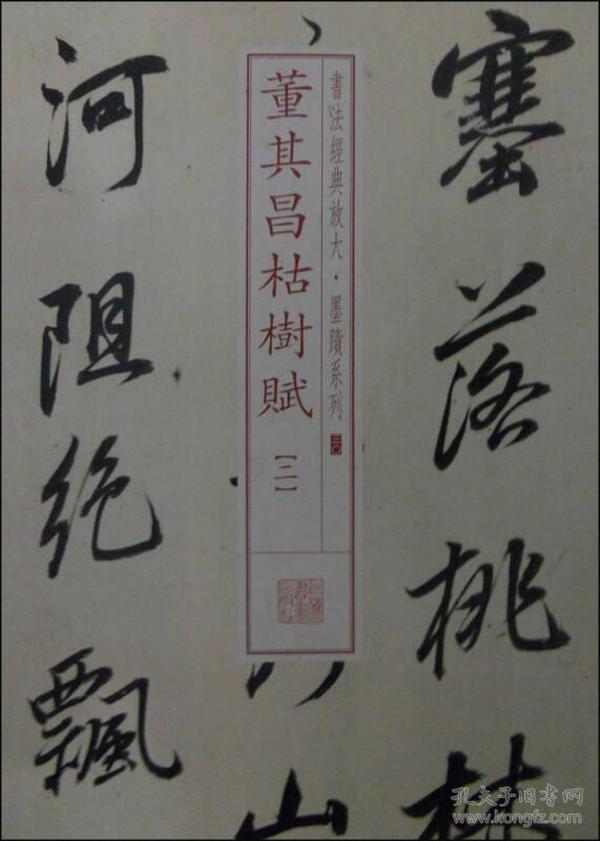 塞落桃林
山
河阻绝飘
書法經典放大·墨蹟系列 三〇
董其昌枯樹賦【二】
孔夫子旧书网
www.kongfz.com